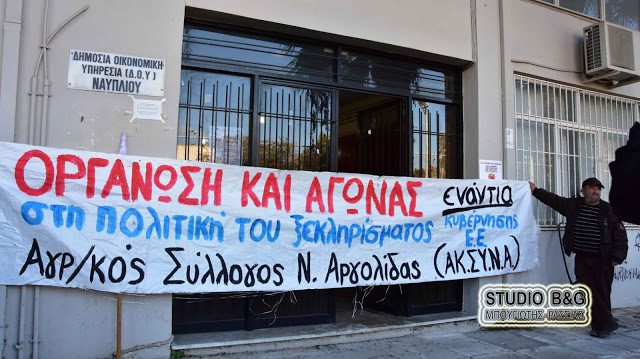 ΔΗΜΟΣΙΑ ΟΙΚΟΝΟΜΙΚΗ
ΥΠΗΡΕΣΙΑ (Δ.Ο.Υ)
ΝΑΥΠΛΙΟΥ
ΟΡΓΑΝΩΣΗ ΚΑΙ ΑΓΩΝΑΣ εναντια
στη πολιτική του ξεκληρίσματος κυβέρνησης
Ε.Ε
Αγρ/κός Σύλλογος Ν. Αργολίδας (ΑΚ.ΣΥ.Ν.Α.)
STUDIO B&G
ΜΠΟΥΓΙΩΤΗΣ - ΓΑΣΠΑΡΗΣ